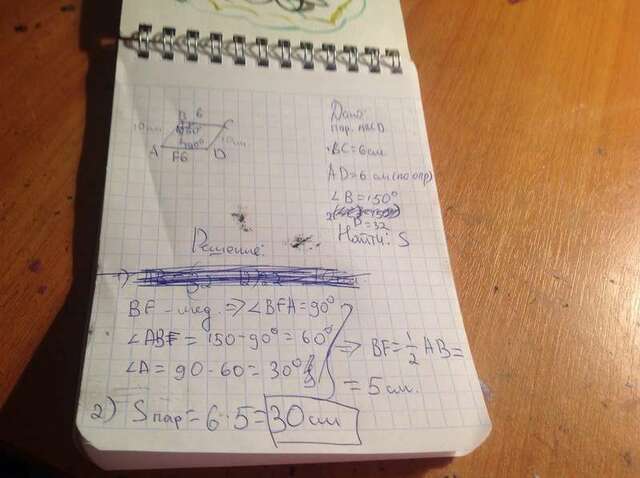 B 6 C
10 см
60°
90°
10 см
A F6 D
Дано:
пар. ABCD
BC=6 см
AD=6 см (по опр)
∠B=150°
P=32
Найти: S
Решение:
1)
BF - мед. => ∠BFA=90°
∠ABF = 150-90°=60°
∠A= 90-60=30°
=> BF=1/2 AB=
= 5 см.
2) Sпар=6·5=30 см